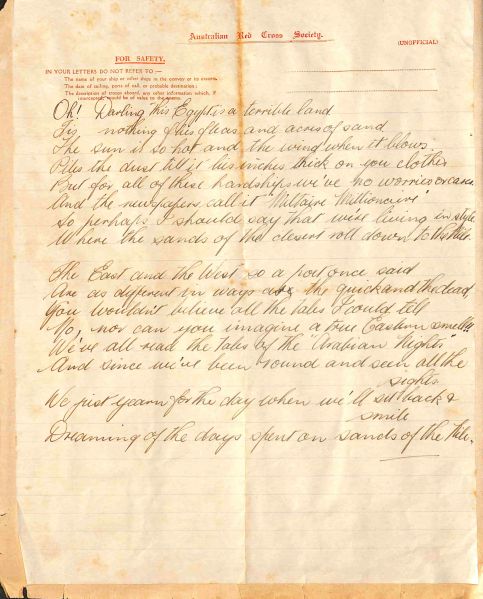 Australian Red Cross Society.
(UNOFFICIAL)
FOR SAFETY.
IN YOUR LETTERS DO NOT REFER TO :—
The name of your ship or other ships in the convoy or its escorts.
The date of sailing, ports of call, or probable destination;
The description of troops aboard, any other information which, if
intercepted, would be of value to the enemy.
Oh! Darling this Egypt is a terrible land
Tis nothing of flies fleas and acres of sand
The sun is so hot and the wind when it blows
Piles the dust till it lies inches thick on you clothes
But for all of these hardships we've no worries or cares
And the newspapers call it "Militaire Millionaires"
So perhaps I should say that we're living in style
Where the sands of the desert roll down to the Nile.
The East and the West so a poet once said
Are as different in ways as the quick and the dead,
You wouldn't believe all the tales I could tell
No, nor can you imagine a true Eastern smell!!
We've all read the tales of the "Arabian Nights"
And since we've been round and seen all the
sights
We just yearn for the day when we'll sit back &
smile
Dreaming of the days spent on sands of the Nile.